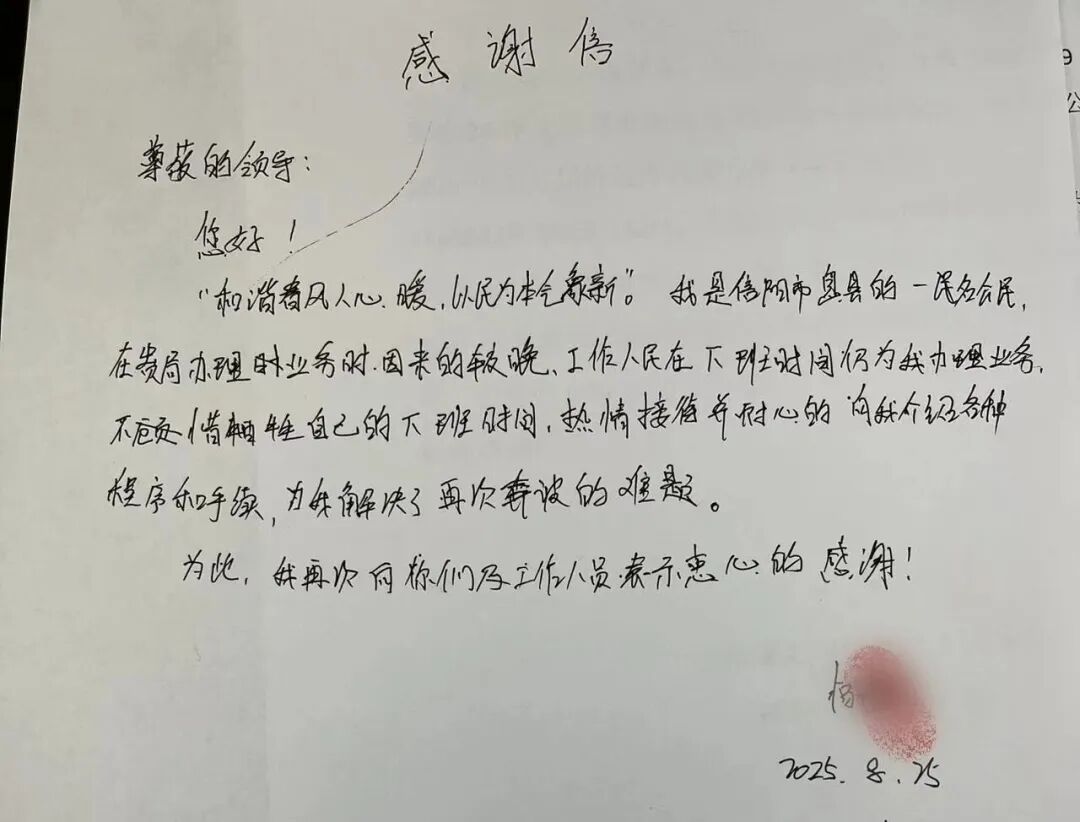 感谢信
尊敬的领导：
您好！
“和谐春风人心暖，以民为本气象新”。我是信阳市息县的一民名公民，
在贵局办理时业务时因来的较晚、工作人民在下班时间仍为我办理业务，
不惜牺牲自己的下班时间，热情接待并耐心的向我介绍各种
程序和手续，为我解决了再次奔波的难题。
为此，我再次向你们及工作人员表示忠心的感谢！
2025.8.25
9
公